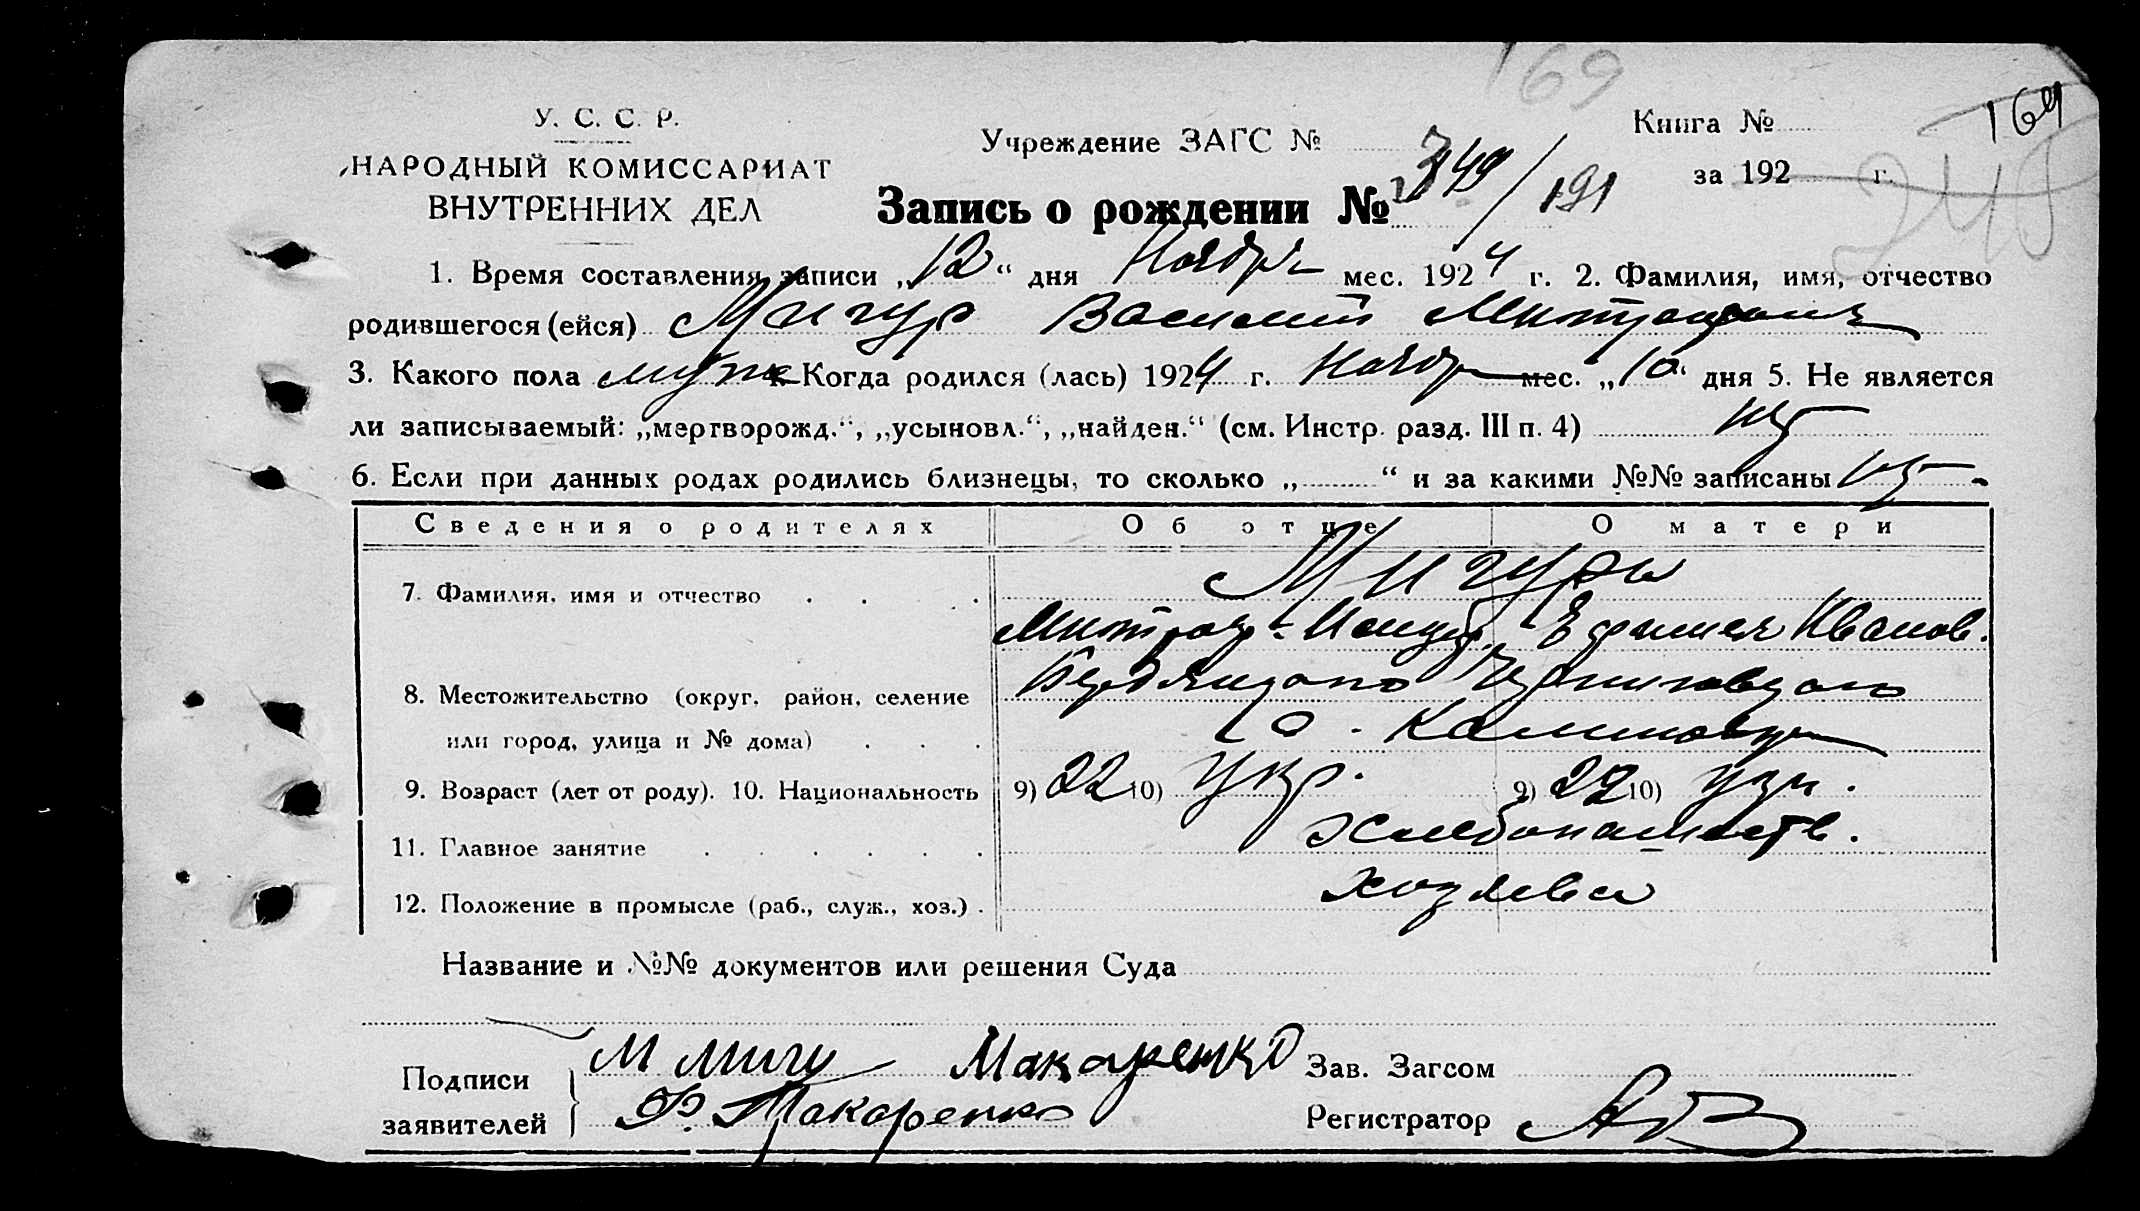 169
169
У. С. С. Р.
НАРОДНЫЙ КОМИССАРИАТ
ВНУТРЕННИХ ДЕЛ
Учреждение ЗАГС №
Книга №
за 192 г.
Запись о рождении № 349/191
1. Время составления записи „12“ дня Ноября мес. 1924 г. 2. Фамилия, имя, отчество
родившегося (ейся) Мигур Василий
3. Какого пола муж 4. Когда родился (лась) 1924 г. Ноябр мес. „10“ дня 5. Не является
ли записываемый: „мертворожд.“, „усыновл.“, „найден.“ (см. Инстр. разд. III п. 4)
6. Если при данных родах родились близнецы, то сколько „ “ и за какими №№ записаны
Сведения о родителях Об отце О матери
7. Фамилия, имя и отчество Мигуры
Ефимия Иванов.
8. Местожительство (округ, район, селение
или город, улица и № дома)
9. Возраст (лет от роду). 10. Национальность 9) 22 10) Укр. 9) 22 10) Укр.
11. Главное занятие Хлебопашеств.
12. Положение в промысле (раб., служ., хоз.) Хозяева
Название и №№ документов или решения Суда
Подписи
заявителей
М Мигу Макаренко
Ф. Макаренко
Зав. Загсом
Регистратор